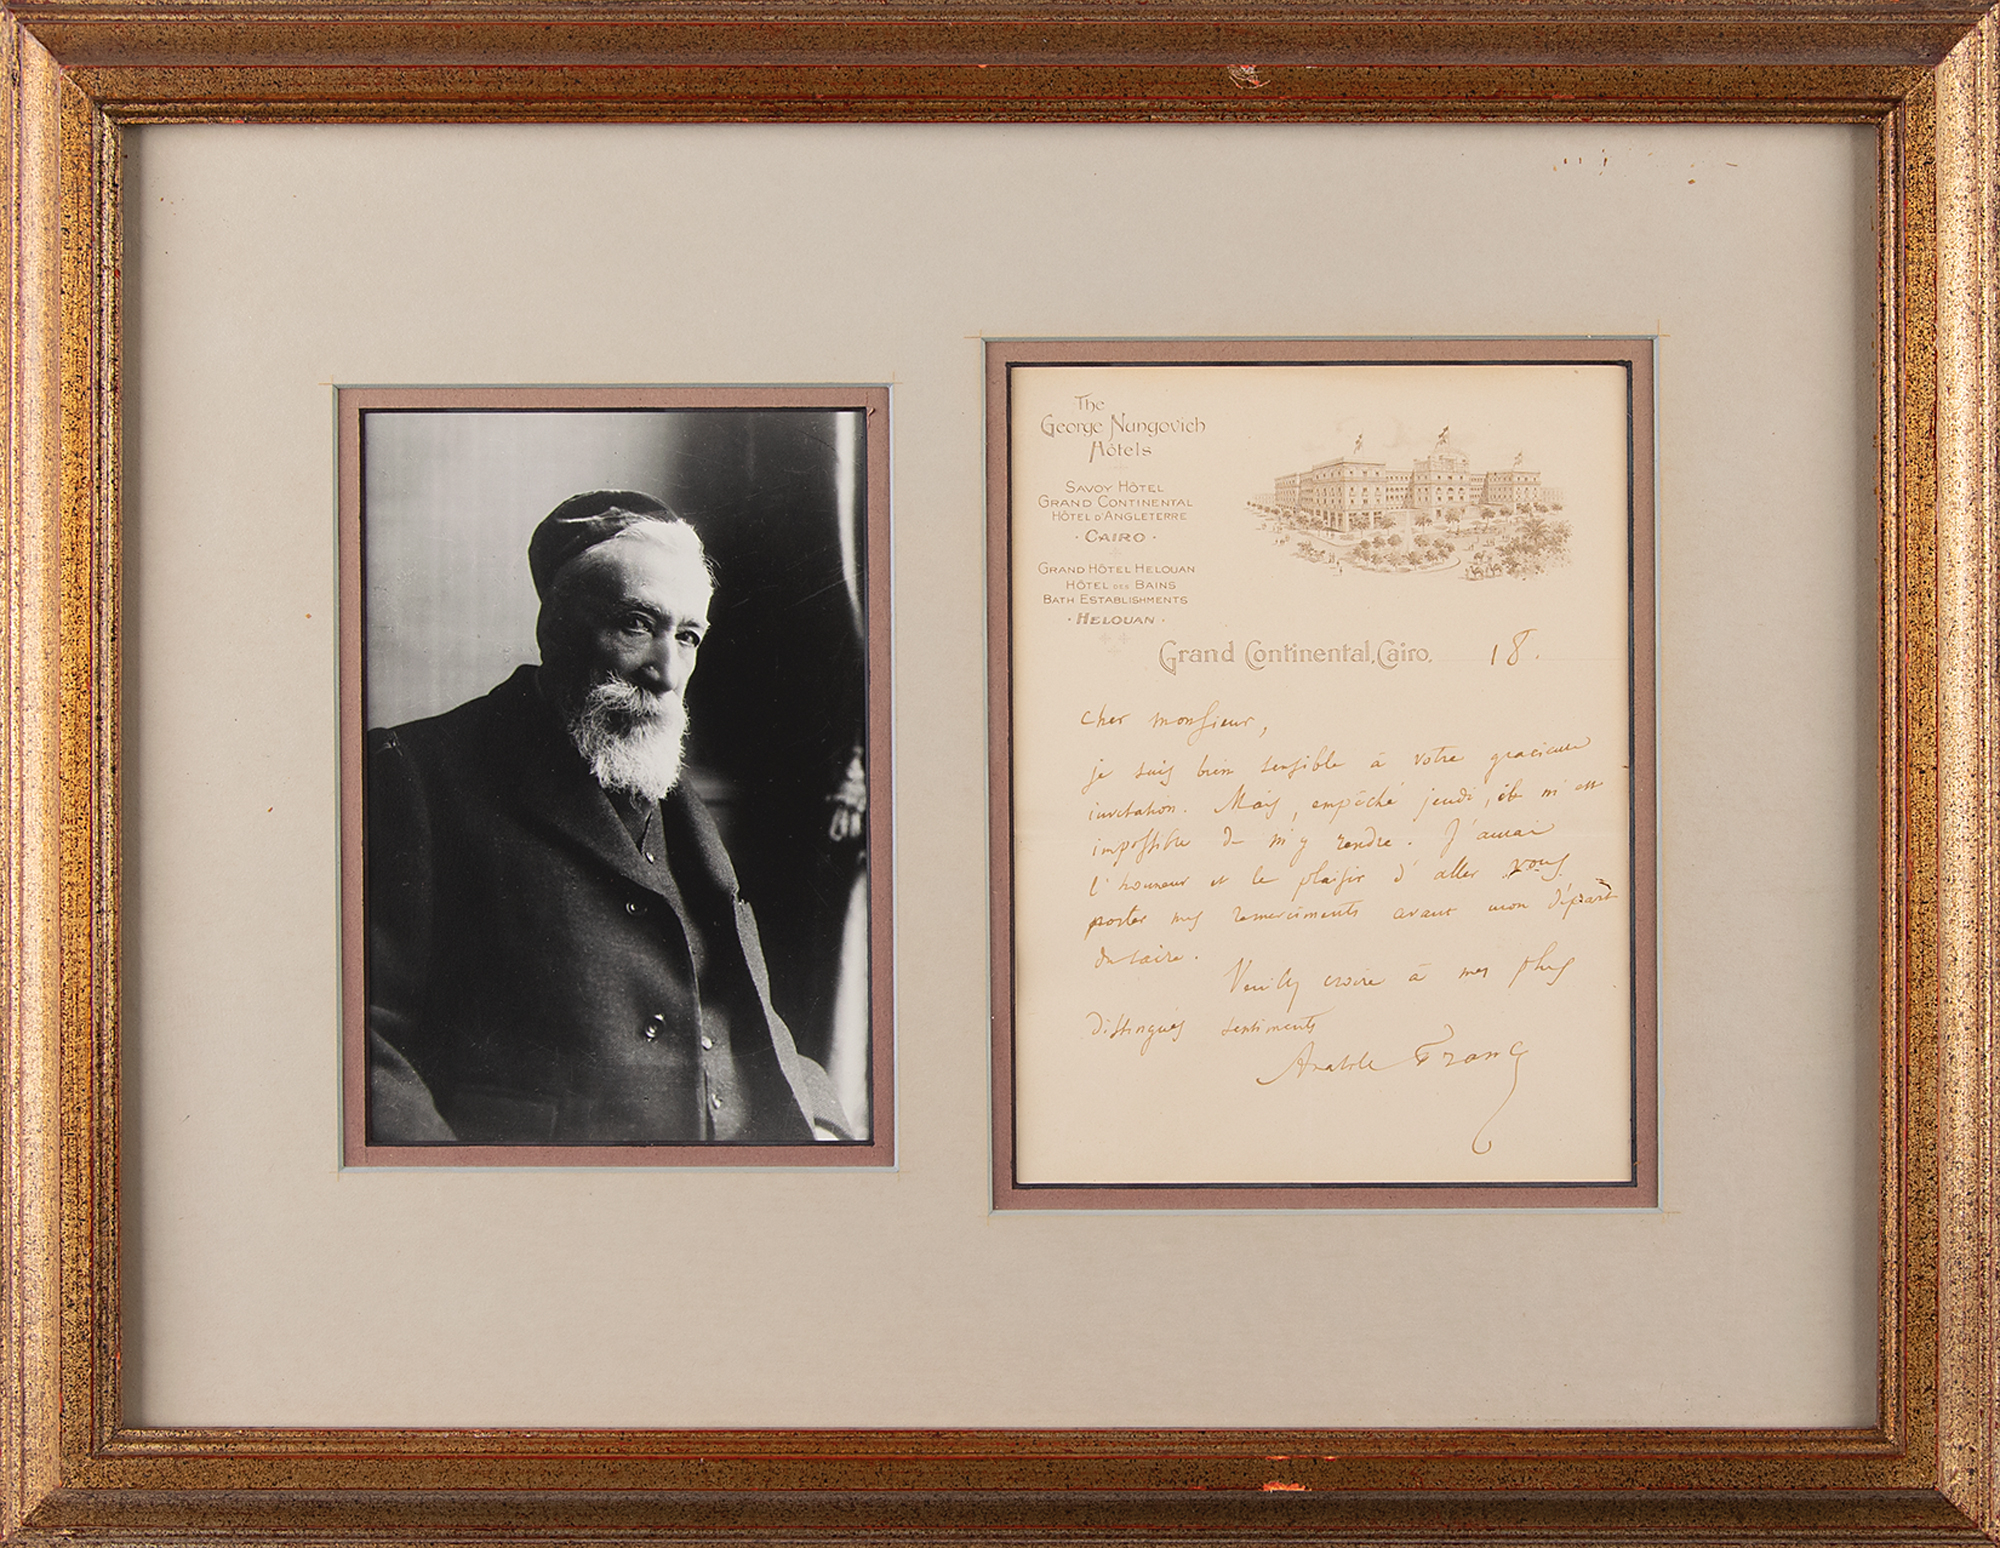 The
George Nungovich
Hôtels
SAVOY HÔTEL
GRAND CONTINENTAL
HÔTEL D'ANGLETERRE
· CAIRO ·
GRAND HÔTEL HELOUAN
HÔTEL DES BAINS
BATH ESTABLISHMENTS
· HELOUAN ·
Grand Continental, Cairo, 18.
Cher monsieur,
je suis bien sensible à votre gracieuse
invitation. Mais, empêché jeudi, il m'est
impossible de m'y rendre. J'aurai
l'honneur et le plaisir d'aller vous
porter mes remerciments avant mon départ
du Caire.
Veuillez croire à mes plus
distingués sentiments
Anatole France